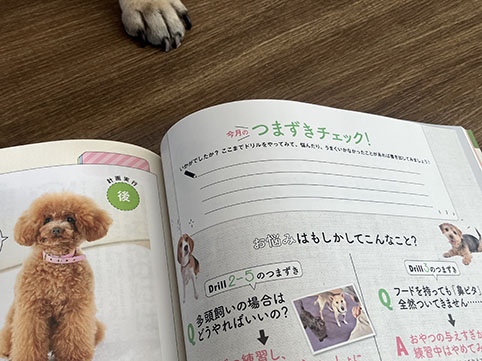 計画実行
後
今月の つまずきチェック!
いかがでしたか? ここまでドリルをやってみて、悩んだり、うまくいかなかったことがあれば書き出してみましょう!
お悩みはもしかしてこんなこと?
Drill 2-5 のつまずき
Q 多頭飼いの場合は
どうやればいいの?
Drill 3 のつまずき
Q フードを持っても「鼻ピタ」
全然ついてきません……
A おやつの与えすぎか
練習中はやめてみ
練習し、